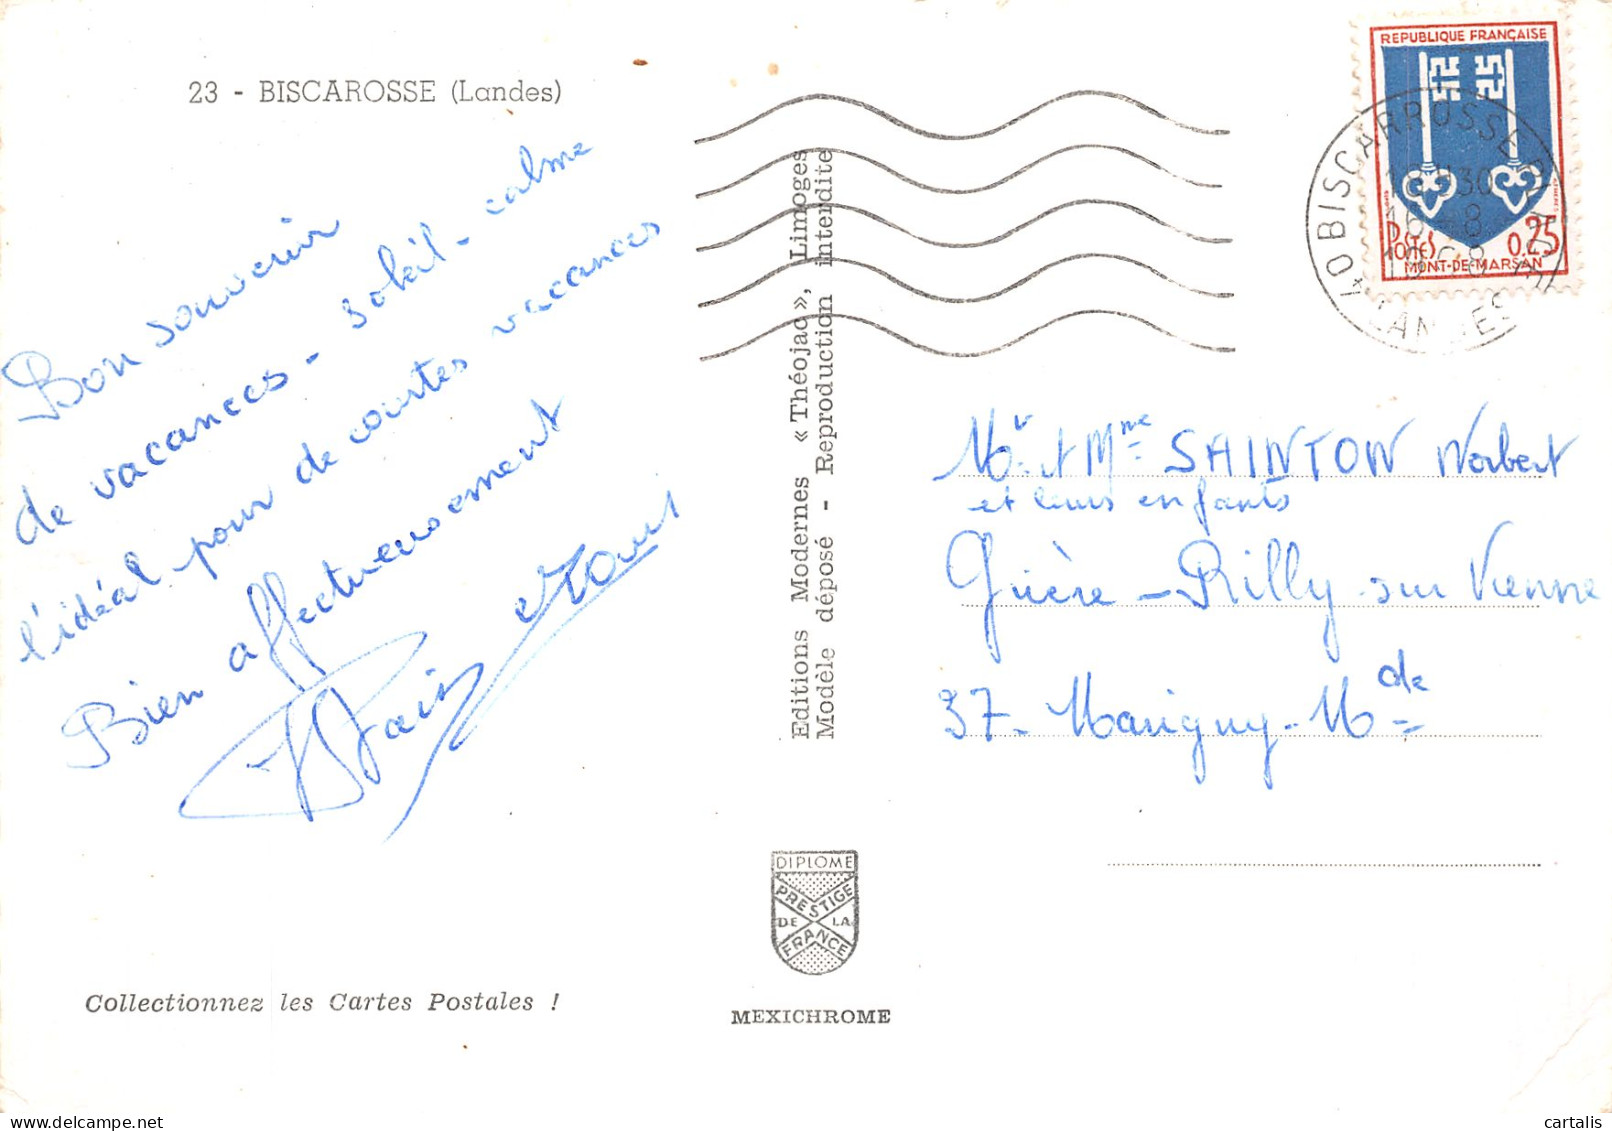 23 - BISCAROSSE (Landes)
Bon souvenir
de vacances - soleil - calme
l'idéal pour de courtes vacances
Bien affectueusement
Editions Modernes « Théojac », Limoges
Modèle déposé - Reproduction interdite
REPUBLIQUE FRANÇAISE
POSTES 0,25
MONT-DE-MARSAN
40 BISCARROSSE
16-8
1968
LANDES
Mr et Mme SAINTON Norbert
et leurs enfants
Guière - Rilly sur Vienne
37 - Marigny - Mde
DIPLOME
PRESTIGE
DE LA
FRANCE
MEXICHROME
Collectionnez les Cartes Postales !
cartalis